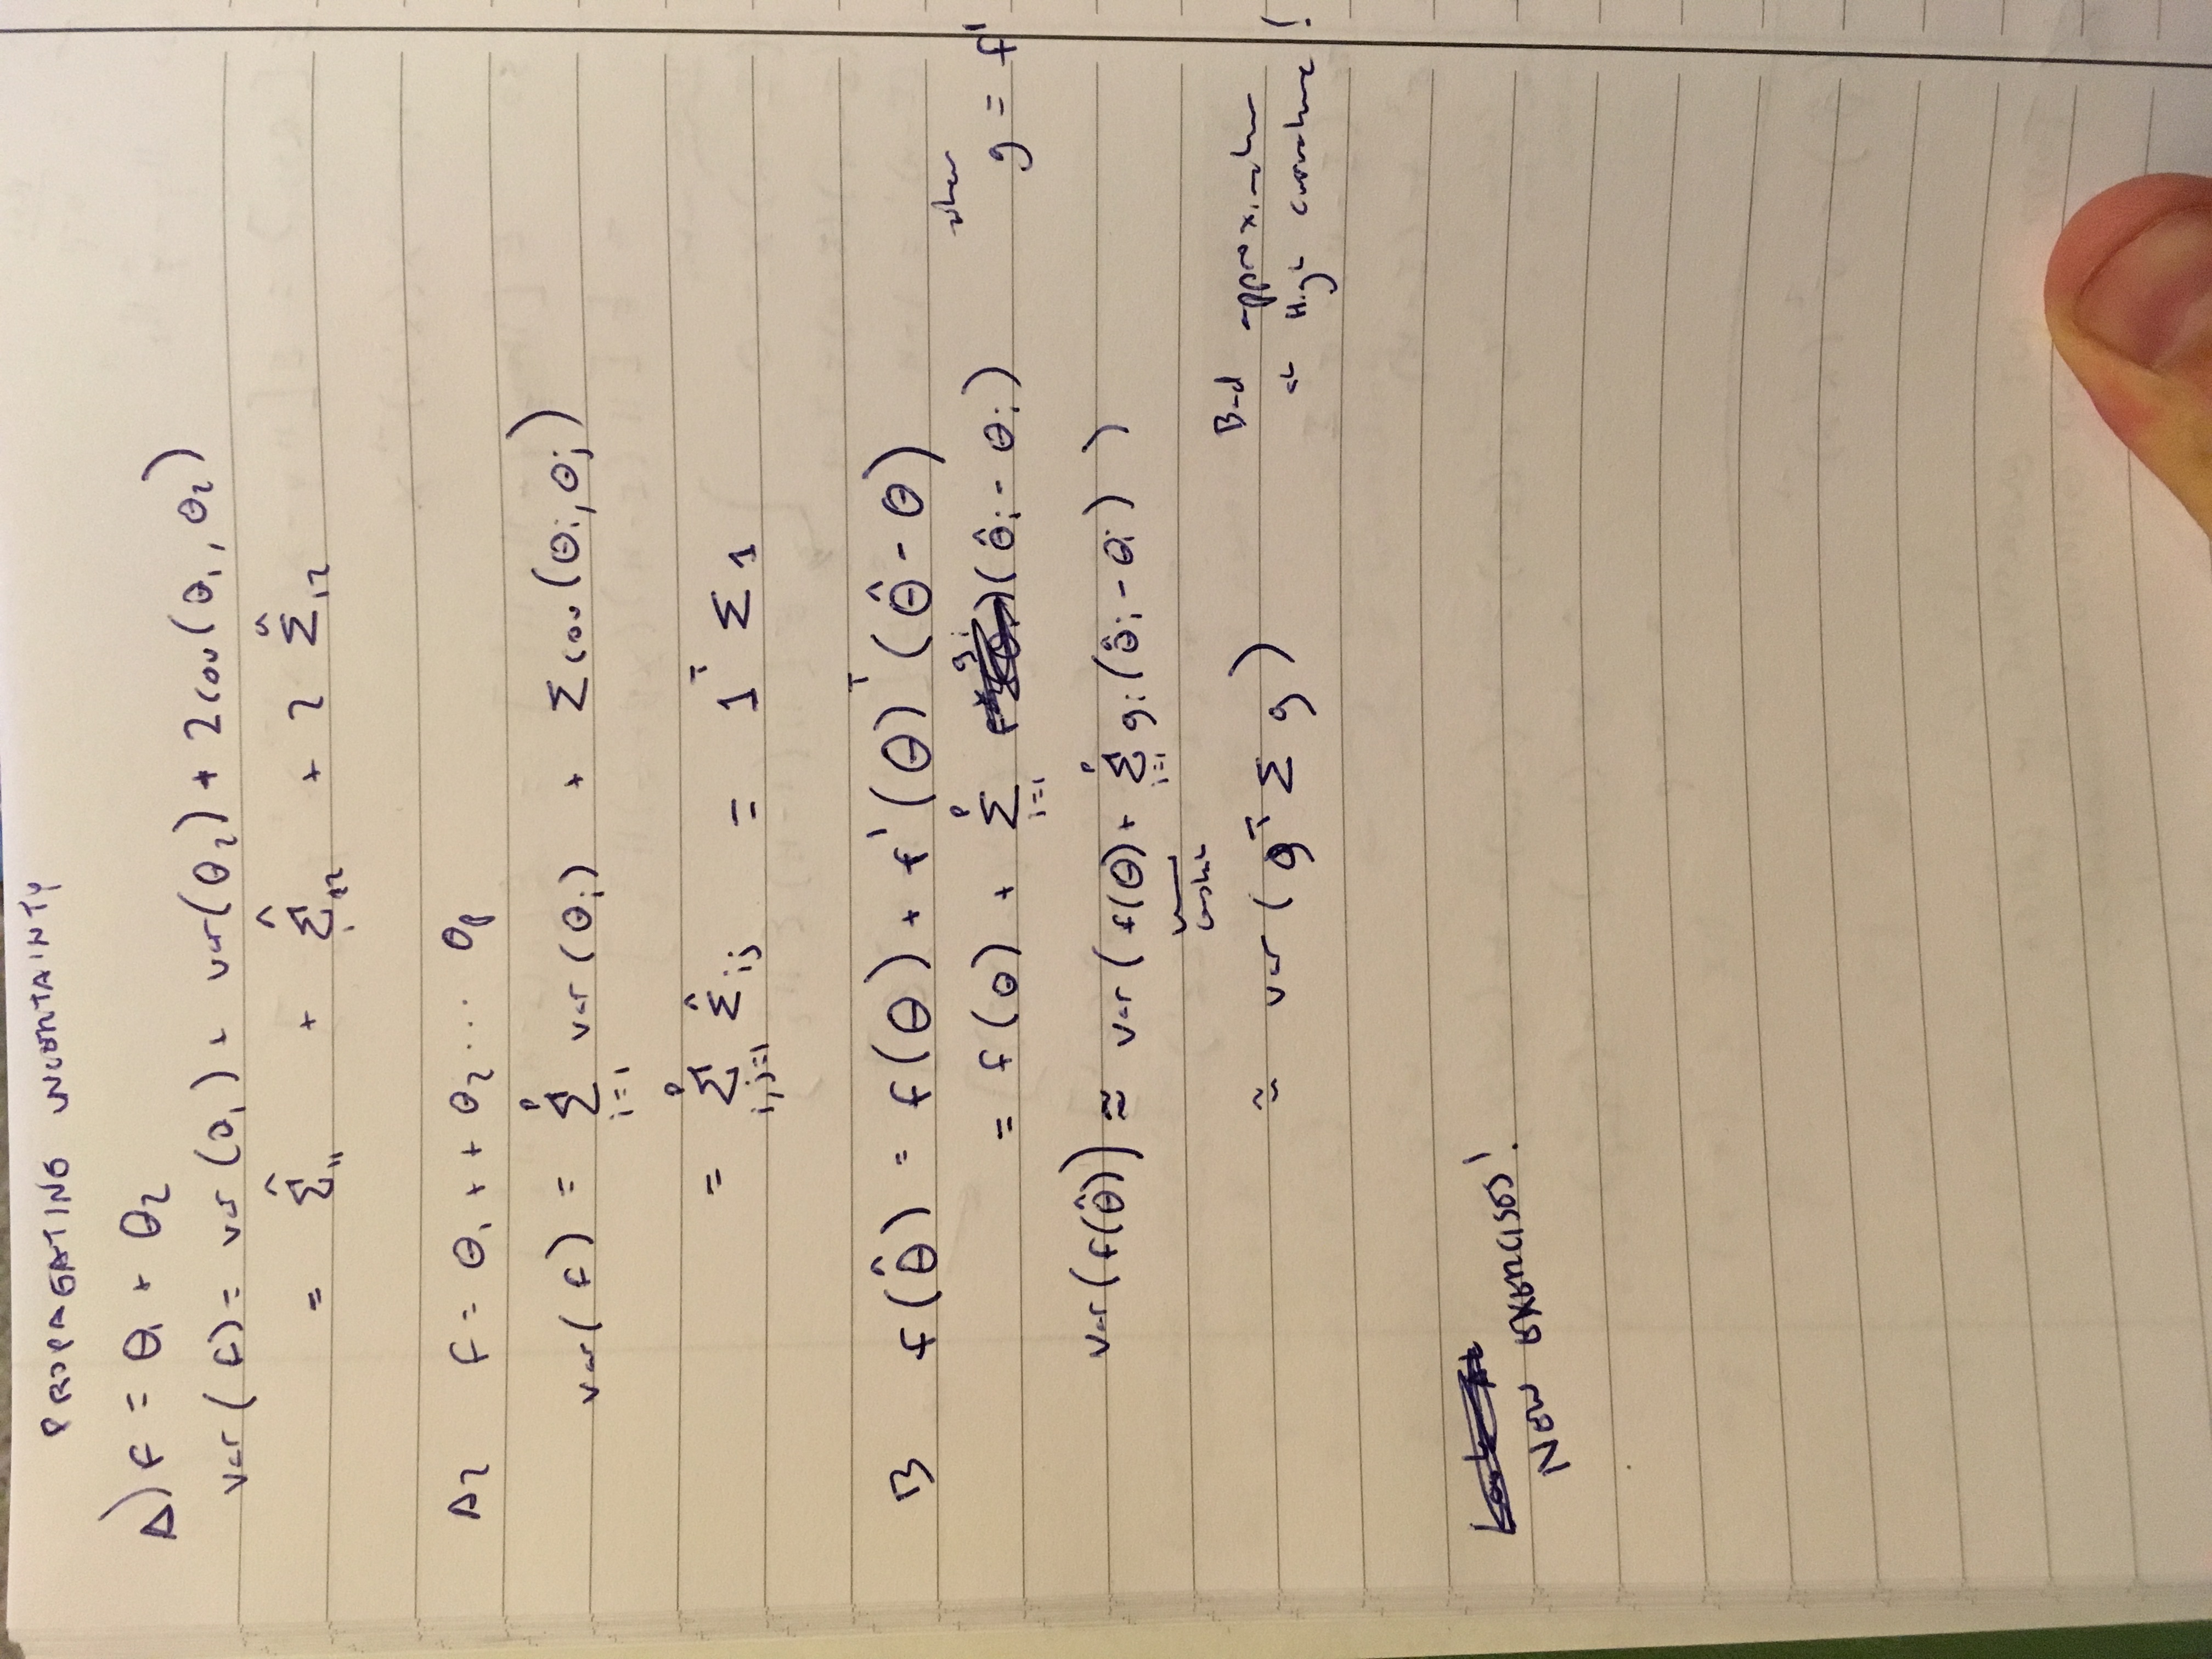 PROPAGATING UNCERTAINTY
A) F = θ₁ + θ₂
var(F) = var(θ₁) + var(θ₂) + 2cov(θ₁, θ₂)
= Σ̂₁₁ + Σ̂₂₂ + 2 Σ̂₁₂
A2 F = θ₁ + + θ₂ ... θₚ
var(F) = Σᵢ₌₁ᵖ var(θᵢ) + Σ cov(θᵢ, θⱼ)
= Σᵢ,ⱼ₌₁ᵖ Σ̂ᵢⱼ = 1ᵀ Σ 1
B f(θ̂) = f(θ) + f'(θ)ᵀ (θ̂ - θ)
= f(θ) + Σᵢ₌₁ᵖ gᵢ (θ̂ᵢ - θᵢ) where g = f'
var(f(θ̂)) ≈ var(f(θ) + Σᵢ₌₁ᵖ gᵢ(θ̂ᵢ - θᵢ))
constant
≈ var(gᵀ Σ g) Bad approximation
at High curvature!
Look At
NEW EXERCISES!